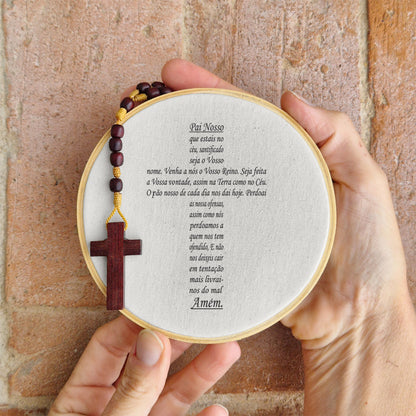 Pai Nosso
que estais no
céu, santificado
seja o Vosso
nome. Venha a nós o Vosso Reino. Seja feita
a Vossa vontade, assim na Terra como no Céu.
O pão nosso de cada dia nos dai hoje. Perdoai
as nossa ofensas,
assim como nós
perdoamos a
quem nos tem
ofendido, E não
nos deixeis cair
em tentação
mais livrai-
nos do mal
Amém.